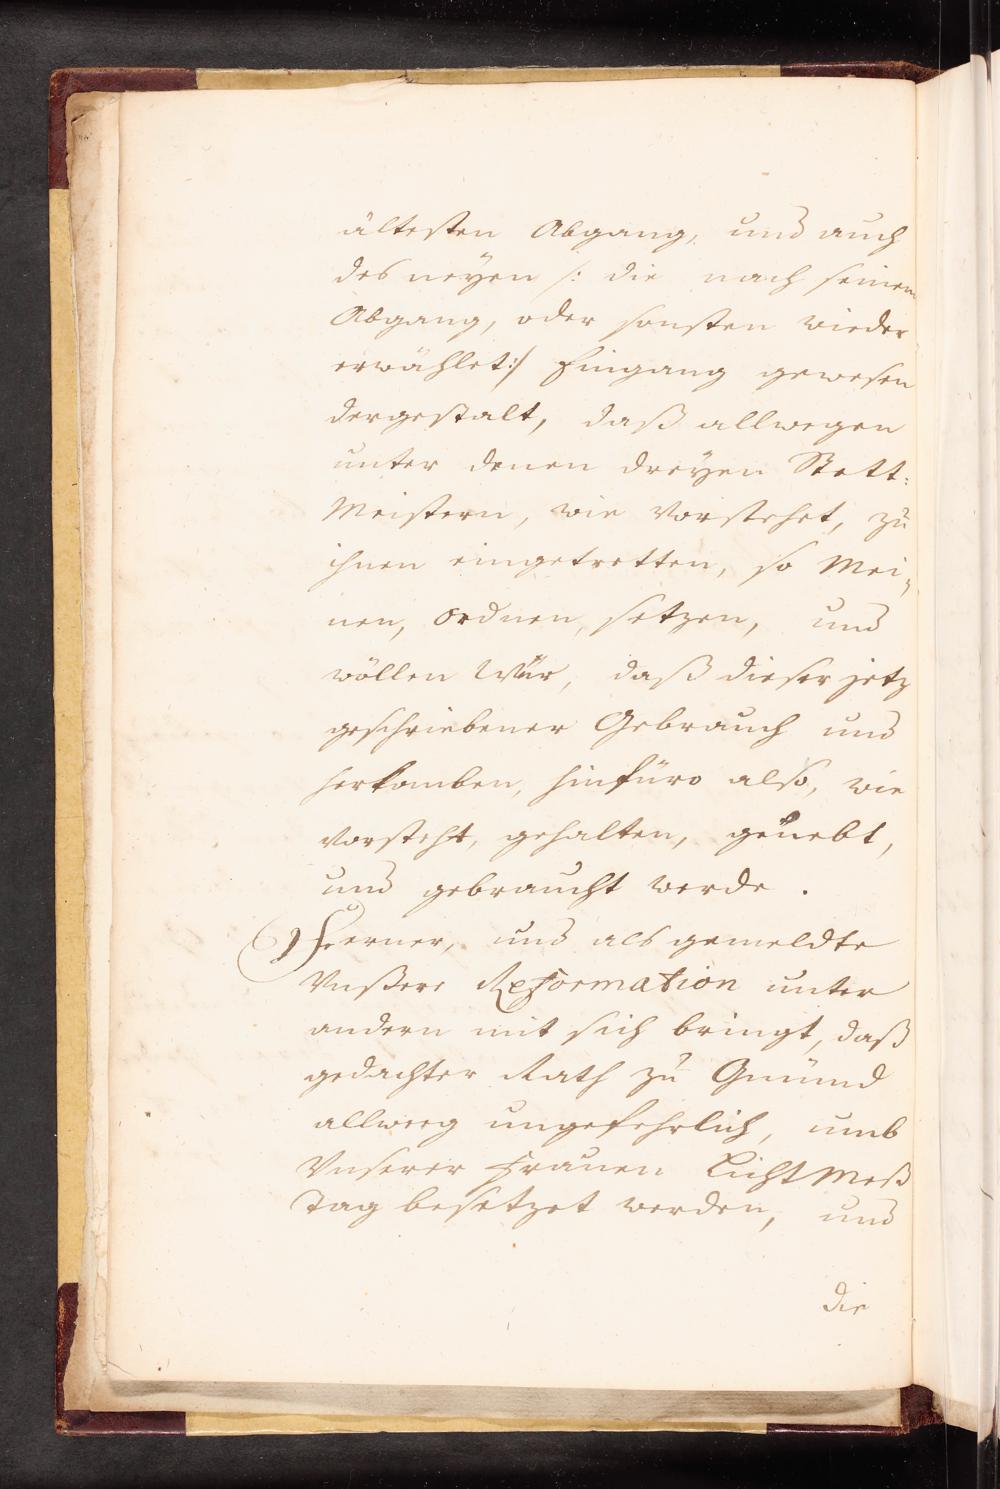 ältesten Abgang, und auch
des neyen /: die nach seinem
Abgang, oder sonsten wieder
erwählet:/ Eingang gewesen
dergestalt, daß allwegen
unter denen dreyen Stett-
Meistern, wie vorstehet, zu
ihnen eingetretten, so Mei-
nen, ordnen, setzen, und
wöllen Wür, daß dieser jetz
geschriebener Gebrauch und
herkomben, hinfüro also, wie
vorsteht, gehalten, geüebt,
und gebraucht werde.
Ferner, und als gemeldte
Vnßere Reformation unter
andern mit sich bringt, daß
gedachter Rath zu Gmünd
allweeg ungefehrlich, umb
Vnserer Frauen LichtMeß
Tag besetzet werden, und
die